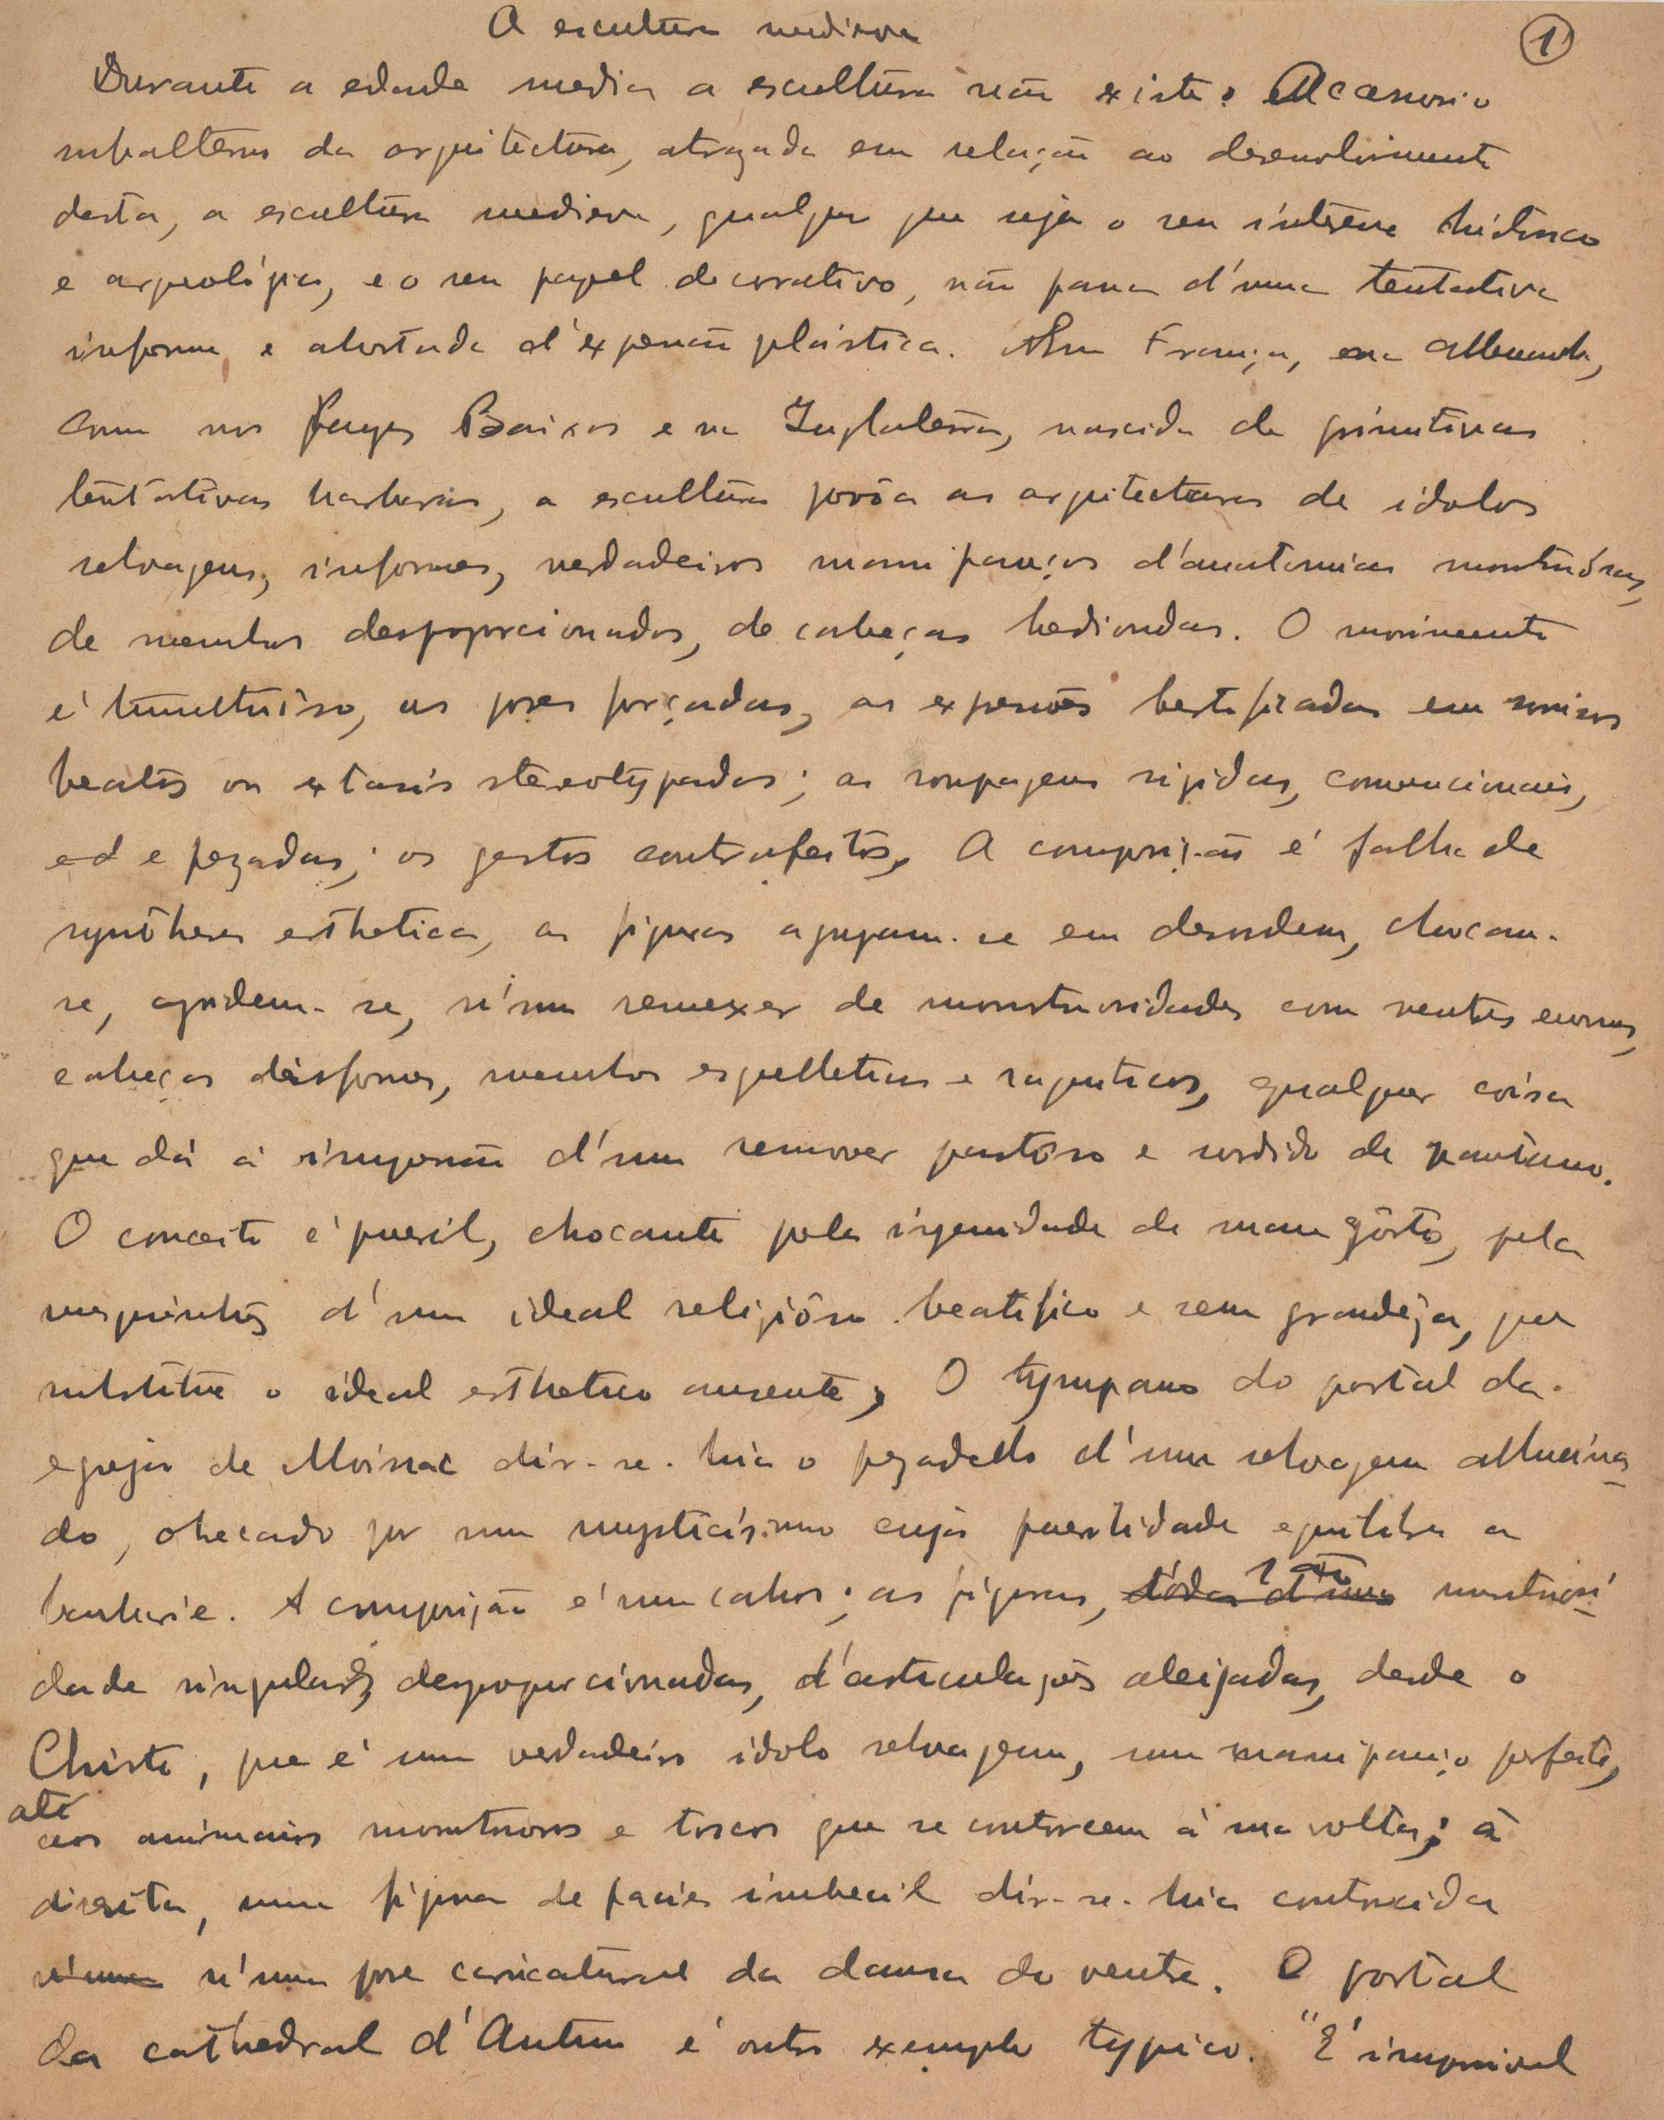 A escultura medieva
1
Durante a edade media a escultura não existe. Accessorio
subalterno da arquitectura, atrazada em relação ao desenvolvimento
desta, a escultura medieva, qualquer que seja o seu interesse historico
e arqueológico, e o seu papel decorativo, não passa d'uma tentativa
informe e abortada d'expressão plástica. Na França, na Allemanha,
como nos Payzes Baixos e na Inglaterra, nascida de primitivas
tentativas barbaras, a escultura povôa as arquitecturas de idolos
selvagens, informes, verdadeiros manipanços d'anatomias monstruósas,
de membros desproporcionados, de cabeças hediondas. O movimento
é tumultuôso, as poses forçadas, as expressões beatificadas em sorrisos
beatos ou extasis stereotypados; as roupagens rigidas, convencionais,
e pezadas; os gestos contrafeitos. A composição é falha de
synthese esthetica, as figuras agrupam-se em desordem, chocam-
se, agridem-se, n'um remexer de monstruosidades com ventres enormes,
cabeças disformes, membros esqueleticos e raquiticos, qualquer coisa
que dá a impressão d'um remover pastôso e sordido de pantano.
O conceito é pueril, chocante pela ingenuidade de mau gôsto, pela
mesquinhez d'um ideal religiôso beatifico e sem grandêza, que
substitue o ideal esthetico ausente. O tympano do portal da
egreja de Moissac dir-se-hia o pezadello d'um selvagem allucina-
do, obecado por um mysticismo cuja puerilidade equilibra a
barbarie. A composição é um cahos; as figuras, tôdas d'uma são monstruosi-
dade singular, desproporcionadas, d'articulações aleijadas, desde o
Christo, que é um verdadeiro idolo selvagem, um manipanço perfeito,
até
aos animais monstruosos e toscos que se contorcem á sua volta; á
direita, uma figura de facies imbecil dir-se-hia contorcida
n'uma n'uma pose caricatural da dansa do ventre. O portal
da cathedral d'Autun é outro exemplo typico. "É impossivel